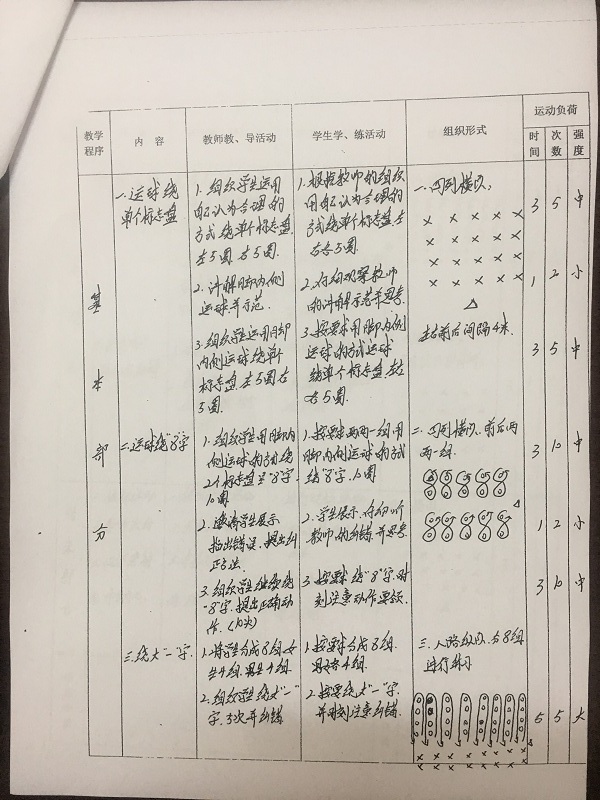 教学程序 内容 教师教、导活动 学生学、练活动 组织形式 运动负荷
时间 次数 强度
基本部分
一.运球绕
单个标志盘
1.组织学生运用
自认为合理的
方式绕单个标志盘.
左5圈 右5圈.
2.讲解脚内侧
运球并示范.
3.组织学生运用脚
内侧运球绕单个
标志盘 左5圈 右
5圈.
1.根据教师的组织
用自认为合理的
方式绕单个标志盘左
右各5圈.
2.仔细观察教师
的讲解示范并思考.
3.按要求用脚内侧
运球的方式运球
绕单个标志盘.左5
右5圈.
一.四列横队.
左右前后间隔4米.
3 5 中
1 2 小
3 5 中
二.运球绕"8"字
1.组织学生用脚内
侧运球的方式绕
2个标志盘呈"8"字
10圈
2.邀请学生展示
指出错误,提出纠
正方法.
3.组织学生继续绕
"8"字.提出正确动
作.(10次)
1.按要求两两一组用
脚内侧运球的方式
绕"8"字.10圈
2.学生展示.仔细听
教师的纠错.并思考.
3.按要求绕"8"字.时
刻注意动作要领.
二.四列横队.前后两
两一组.
3 10 中
1 2 小
3 10 中
三.绕大"一"字.
1.将学生分成8组.女
生4组.男生4组.
2.组织学生绕大"一"
字.5次并纠错
1.按要求分成8组.
男女各4组.
2.按要绕大"一"字.
并时刻注意纠错.
三.八路纵队.分8组
进行练习
5 5 大